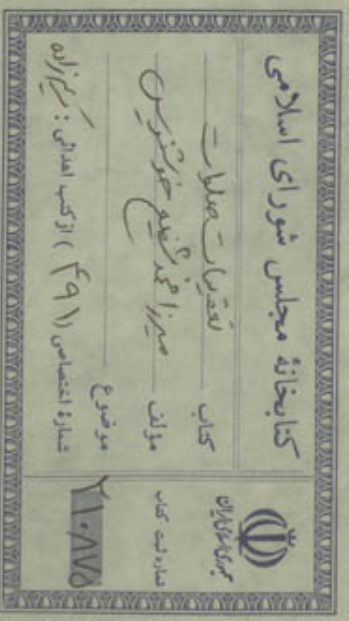 کتابخانهٔ مجلس شورای اسلامی
کتاب تعقیبات صلوات
مؤلف میرزا محمد شفیع خوشنویس
موضوع
شمارهٔ اختصاصی ( ۴۹۱ ) از کتب اهدائی : کریم‌زاده
جمهوری اسلامی ایران
شماره ثبت کتاب
۲۱۰۸۷۵